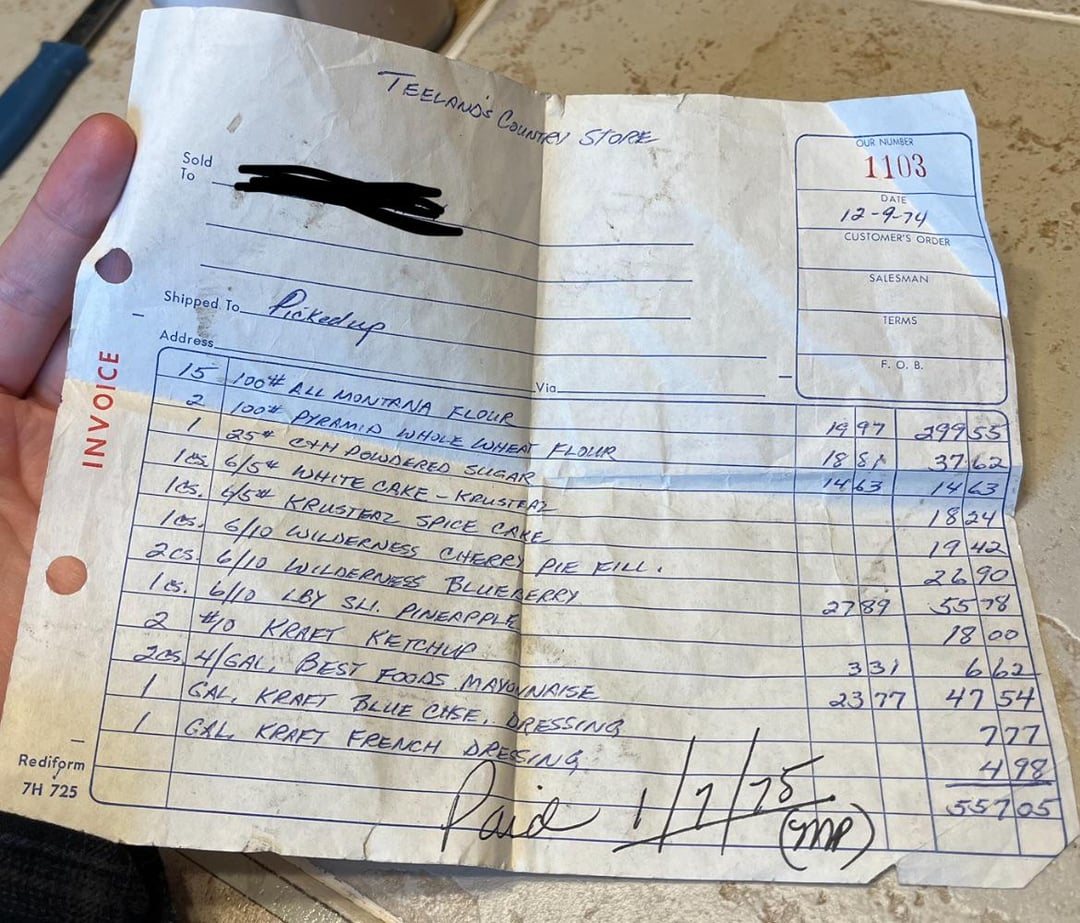 TEELAND'S COUNTRY STORE
Sold
To
OUR NUMBER
1103
DATE
12-9-74
CUSTOMER'S ORDER
SALESMAN
TERMS
F. O. B.
Shipped To Picked up
Address
Via
INVOICE
15 100# ALL MONTANA FLOUR 19 97 299 55
2 100# PYRAMID WHOLE WHEAT FLOUR 18 81 37 62
1 25# C+H POWDERED SUGAR 14 63 14 63
1cs 6/5# WHITE CAKE - KRUSTEAZ 18 24
1cs. 6/5# KRUSTEAZ SPICE CAKE 19 42
1cs. 6/10 WILDERNESS CHERRY PIE FILL. 26 90
2cs. 6/10 WILDERNESS BLUEBERRY 27 89 55 78
1cs. 6/10 LBY SLI. PINEAPPLE 18 00
2 #10 KRAFT KETCHUP 3 31 6 62
2cs. 4/GAL. BEST FOODS MAYONNAISE 23 77 47 54
1 GAL. KRAFT BLUE CHSE. DRESSING 7 77
1 GAL. KRAFT FRENCH DRESSING 4 98
557 05
Paid 1/7/75
(MP)
Rediform
7H 725